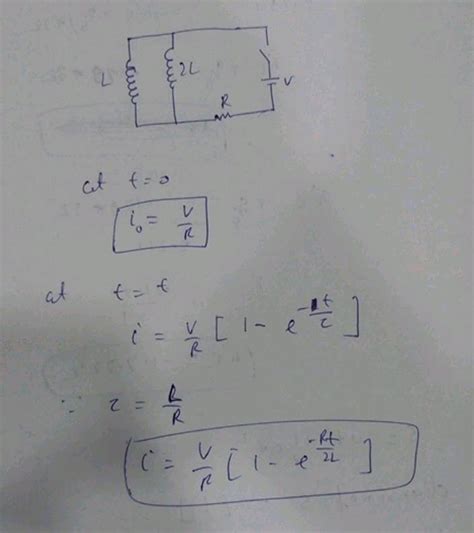 L 2L V
R
at t=0
i₀ = V/R
at t = t
i = V/R [ 1 - e^(-t/τ) ]
∵ τ = L/R
i = V/R [ 1 - e^(-Rt/2L) ]